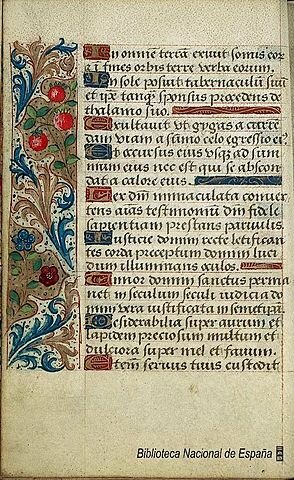 In omnem terrā exivit sonus eor
et i fines orbis terre verba eorum.
In sole posuit tabernaculū suū
et ipe tanqȝ sponsus procedens de
thalamo suo.
Exultavit ut gygas a curre
dam viam a sūmo celo egressio eiꝰ
Et occursus eius usqȝ ad sum
mum eius nec est qui se abscon
dat a calore eius.
Lex dm̄ immaculata conver
tens aīas testimoniū dm̄ fidele
sapientiam prestans parvulis.
Iusticie domini recte letifican
tes corda preceptum domini luci
dum illuminans oculos.
Timor domini sanctus perma
net in seculum seculi iudicia do
mini vera iustificata in semetipā.
Desiderabilia super aurum et
lapidem preciosum multum et
dulciora super mel et favum.
Etem servus tuus custodit
Biblioteca Nacional de España